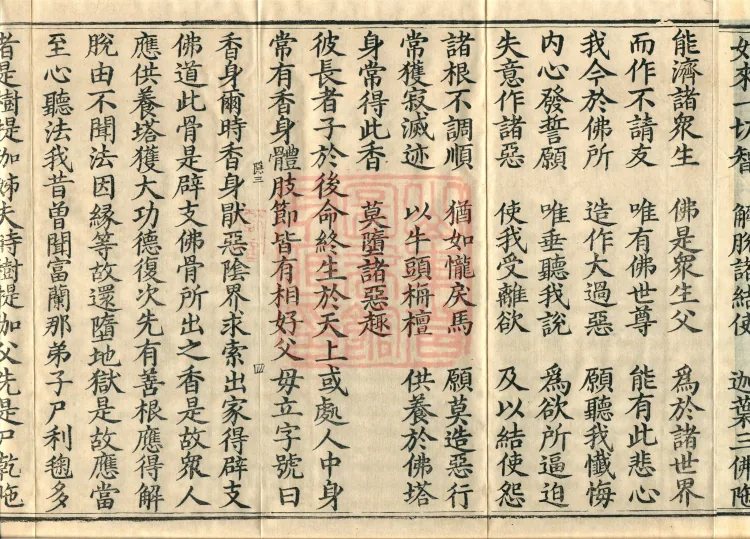 如來一切智 解脫諸結使 迦葉三佛陁
能濟諸衆生 佛是衆生父 爲於諸世界
而作不請友 唯有佛世尊 能有此悲心
我今於佛所 造作大過惡 願聽我懺悔
內心發誓願 唯垂聽我說 爲欲所逼迫
失意作諸惡 使我受離欲 及以結使怨
諸根不調順 猶如㦬戾馬 願莫造惡行
常獲寂滅迹 以牛頭栴檀 供養於佛塔
身常得此香 莫墮諸惡趣
彼長者子於後命終生於天上或處人中身
常有香身體肢節皆有相好父母立字號曰
香身爾時香身猒惡陰界求索出家得辟支
佛道此骨是辟支佛骨所出之香是故衆人
應供養塔獲大功德復次先有善根應得解
脫由不聞法因緣等故還墮地獄是故應當
至心聽法我昔曾聞富蘭那弟子尸利毱多
者是樹提伽姊夫時樹提伽父先是尸乾陁